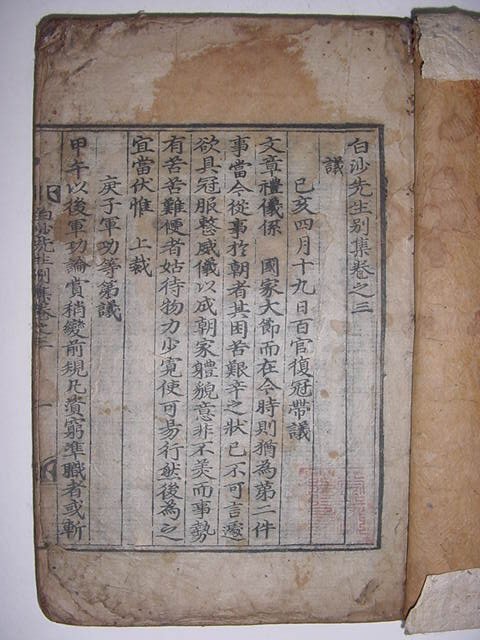 白沙先生别集卷之三
議
己亥四月十九日百官復冠帶議
文章禮儀係　國家大節而在今時則猶為第二件
事當今從事於朝者其困苦艱辛之狀已不可言遽
欲具冠服整威儀以成朝家體貌意非不美而事勢
有苦辛難便者姑待物力少寬使可易行然後為之
宜當伏惟　上裁
庚子軍功等第議
甲午以後軍功論賞稍變前規凡資窮準職者或斬
白沙先生别集卷之三　一